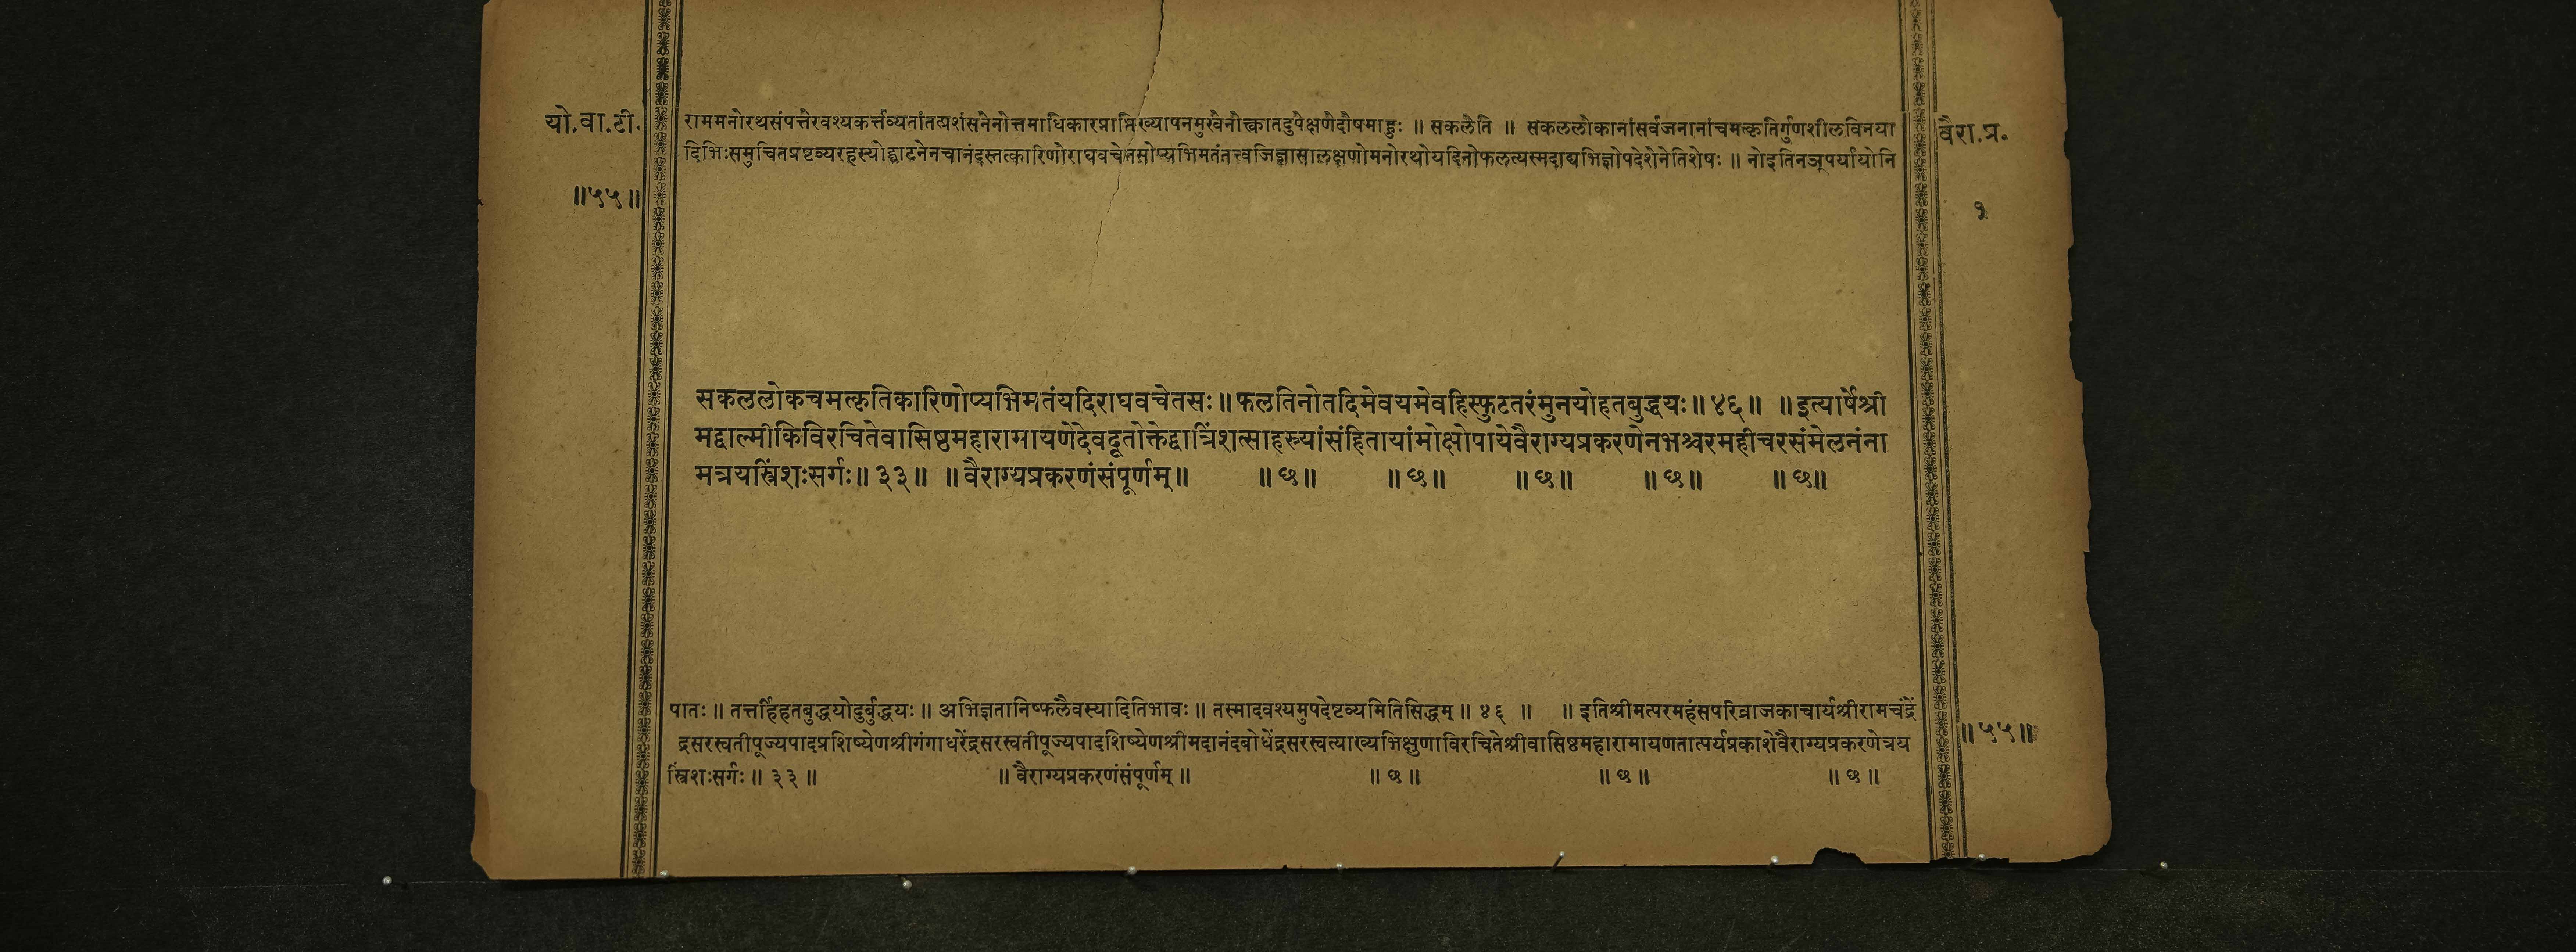 यो.वा.टी.
॥५५॥
राममनोरथसंपत्तेरवश्यकर्त्तव्यतांतत्प्रशंसनेनोत्तमाधिकारप्राप्तिख्यापनमुखेनोक्त्वातदुपेक्षणेदोषमाहुः ॥ सकलेति ॥ सकललोकानांसर्वजनानांचमत्कृतिर्गुणशीलविनया
दिभिःसमुचितप्रष्टव्यरहस्योद्घाटनेनचानंदस्तत्कारिणोराघवचेतसोप्यभिमतंतत्त्वजिज्ञासालक्षणोमनोरथोयदिनोफलत्यस्मदाद्यभिज्ञोपदेशेनेतिशेषः ॥ नोइतिनञ्पर्यायोनि
वैरा.प्र.
१
सकललोकचमत्कृतिकारिणोप्यभिमतंयदिराघवचेतसः॥फलतिनोतदिमेवयमेवहिस्फुटतरंमुनयोहतबुद्धयः॥४६॥ ॥इत्यार्षेश्री
मद्वाल्मीकिविरचितेवासिष्ठमहारामायणेदेवदूतोक्तेद्वात्रिंशत्साहस्र्यांसंहितायांमोक्षोपायेवैराग्यप्रकरणेनभश्चरमहीचरसंमेलनंना
मत्रयस्त्रिंशःसर्गः॥३३॥ ॥वैराग्यप्रकरणंसंपूर्णम्॥ ॥छ॥ ॥छ॥ ॥छ॥ ॥छ॥ ॥छ॥
पातः ॥ तत्तर्हिहतबुद्धयोदुर्बुद्धयः ॥ अभिज्ञतानिष्फलैवस्यादितिभावः ॥ तस्मादवश्यमुपदेष्टव्यमितिसिद्धम् ॥ ४६ ॥ ॥ इतिश्रीमत्परमहंसपरिव्राजकाचार्यश्रीरामचंद्रें
द्रसरस्वतीपूज्यपादप्रशिष्येणश्रीगंगाधरेंद्रसरस्वतीपूज्यपादशिष्येणश्रीमदानंदबोधेंद्रसरस्वत्याख्यभिक्षुणाविरचितेश्रीवासिष्ठमहारामायणतात्पर्यप्रकाशेवैराग्यप्रकरणेत्रय
स्त्रिंशःसर्गः ॥ ३३ ॥ ॥ वैराग्यप्रकरणंसंपूर्णम् ॥ ॥ छ ॥ ॥ छ ॥ ॥ छ ॥
॥५५॥